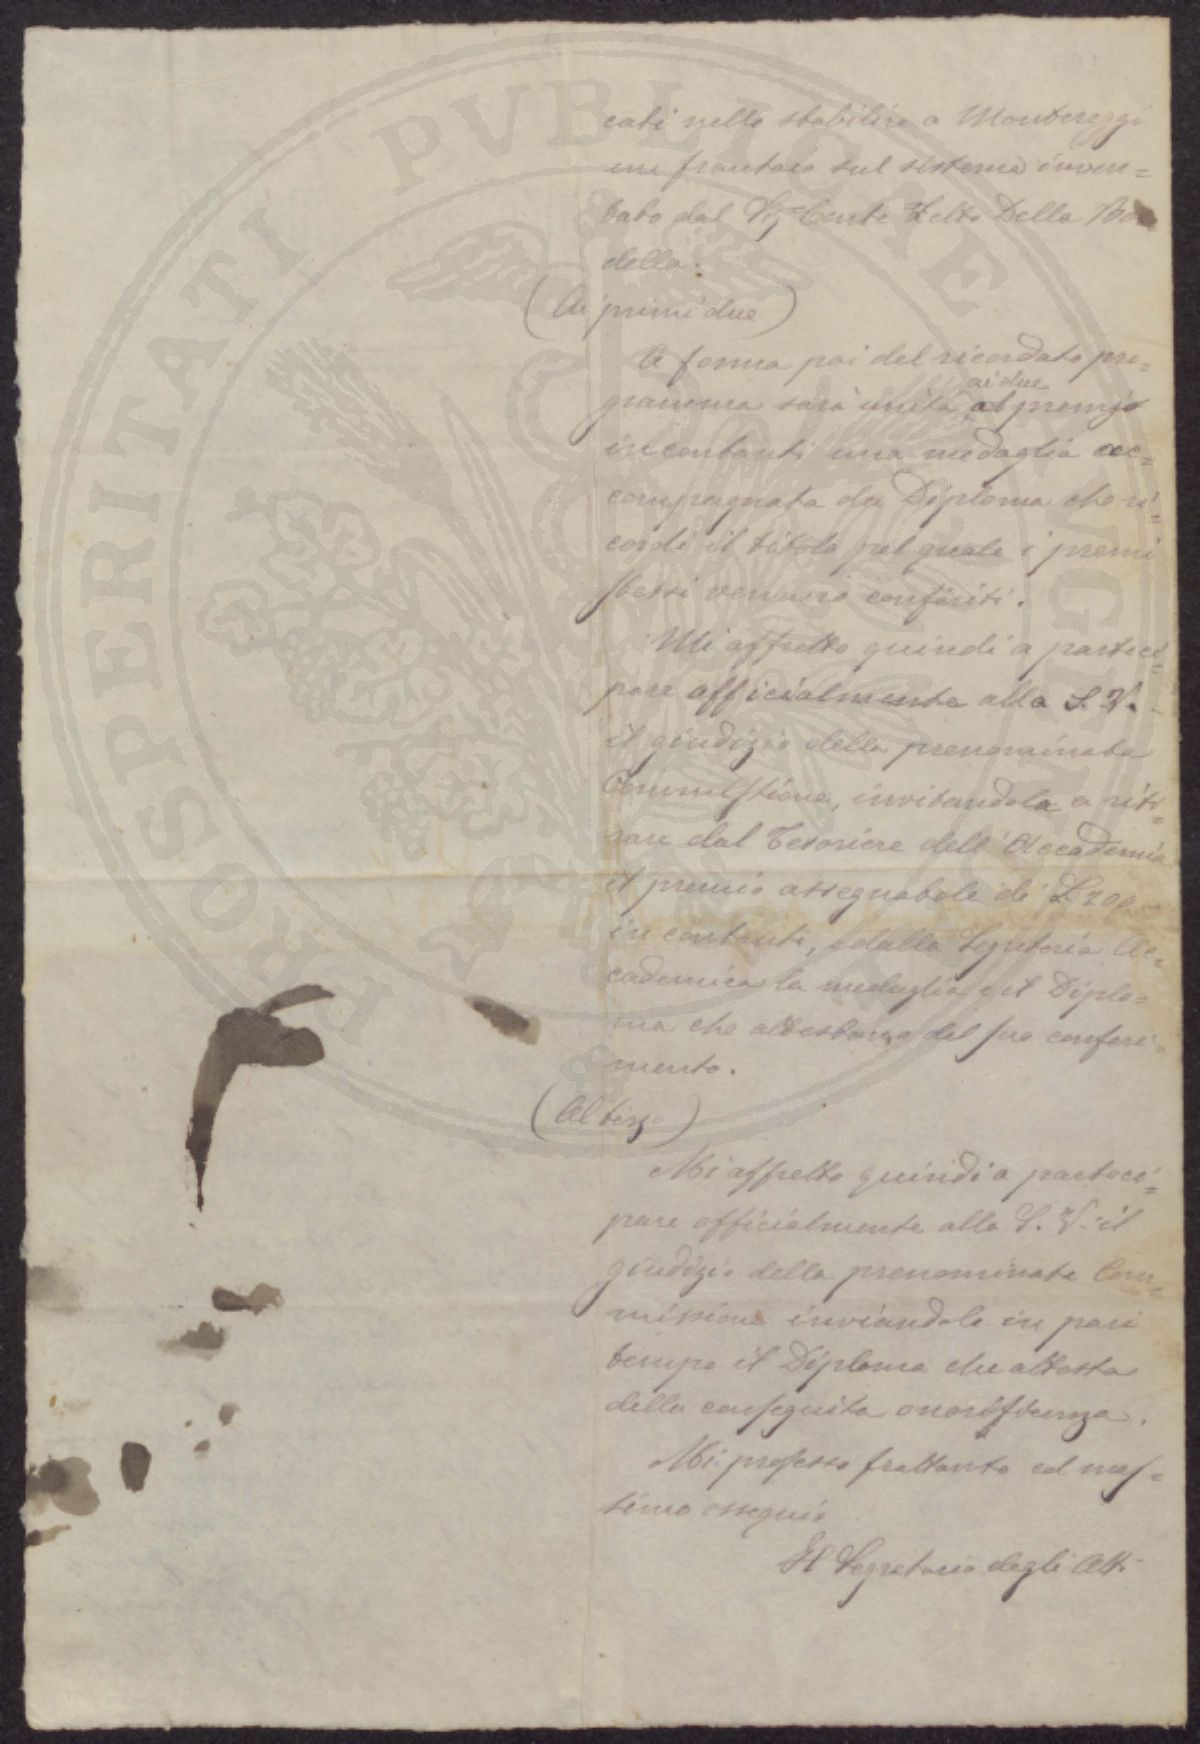 cati nello stabilire a Montereggi
un frantoio sul sistema inven=
tato dal Sig. Conte Della
della.
(Ai primi due)
A forma poi del ricordato pro=
ai due
gramma sarà unita al premio
in contanti una medaglia ac=
compagnata da Diploma che ri=
cordi il titolo pel quale i premi
stessi vennero conferiti.
Mi affretto quindi a parteci=
pare officialmente alla S. V.
il giudizio della prenominata
Commissione, invitandola a riti=
rare dal Tesoriere dell'Accademia
il premio assegnatole di L 200
in contanti, e dalla Segreteria Ac=
cademica la medaglia e il Diplo=
ma che attestano del suo conferi=
mento.
(Al terzo)
Mi affretto quindi a parteci=
pare officialmente alla S. V. il
giudizio della prenominata Com=
missione inviandole in pari
tempo il Diploma che attesta
della conseguita onorificenza.
Mi professo frattanto col mas=
simo ossequio
Il Segretario degli Atti
PROSPERITATI PVBLICAE AVGENDAE